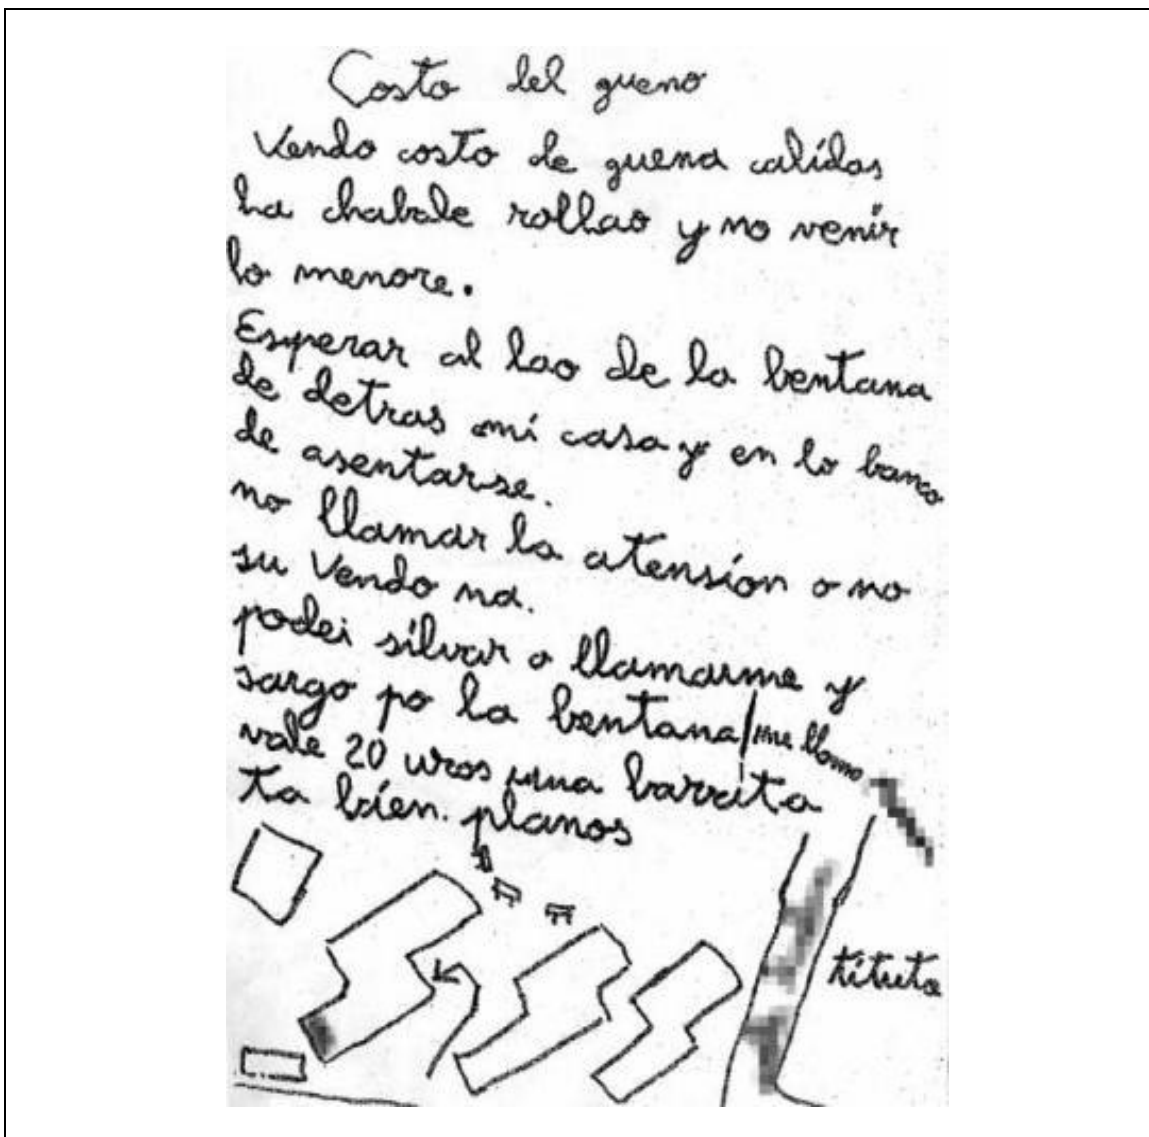 Costo del gueno
Vendo costo de guena calidas
ha chabale rollao y no venir
lo menore.
Esperar al lao de la bentana
de detras mi casa y en lo banco
de asentarse.
no llamar la atension o no
su vendo na.
podei silvar o llamarme y
sargo po la bentana/me llamo
vale 20 uros una barrita
ta bien. planos
tituto